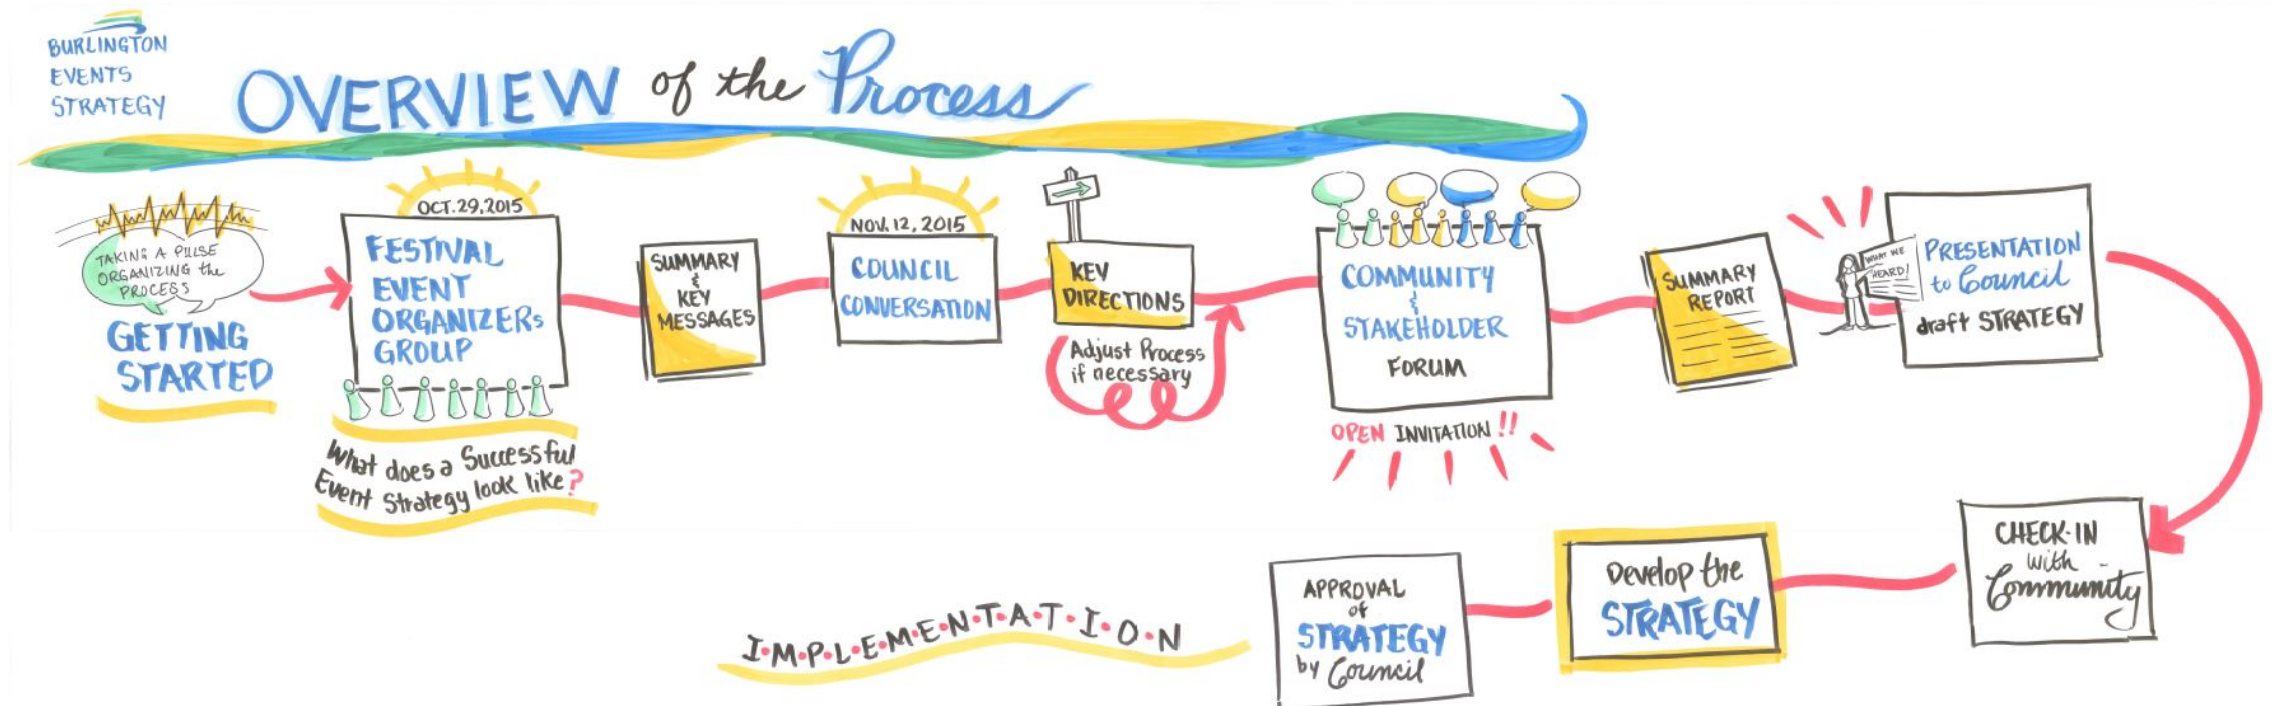 BURLINGTON
EVENTS
STRATEGY
OVERVIEW of the Process
TAKING A PULSE
ORGANIZING the
PROCESS
GETTING
STARTED
OCT. 29, 2015
FESTIVAL
EVENT
ORGANIZERs
GROUP
What does a Successful
Event Strategy look like?
SUMMARY
&
KEY
MESSAGES
NOV. 12, 2015
COUNCIL
CONVERSATION
KEY
DIRECTIONS
Adjust Process
if necessary
COMMUNITY
&
STAKEHOLDER
FORUM
OPEN INVITATION!!
SUMMARY
REPORT
WHAT WE
HEARD!
PRESENTATION
to Council
draft STRATEGY
CHECK-IN
with
Community
Develop the
STRATEGY
APPROVAL
of
STRATEGY
by Council
I•M•P•L•E•M•E•N•T•A•T•I•O•N